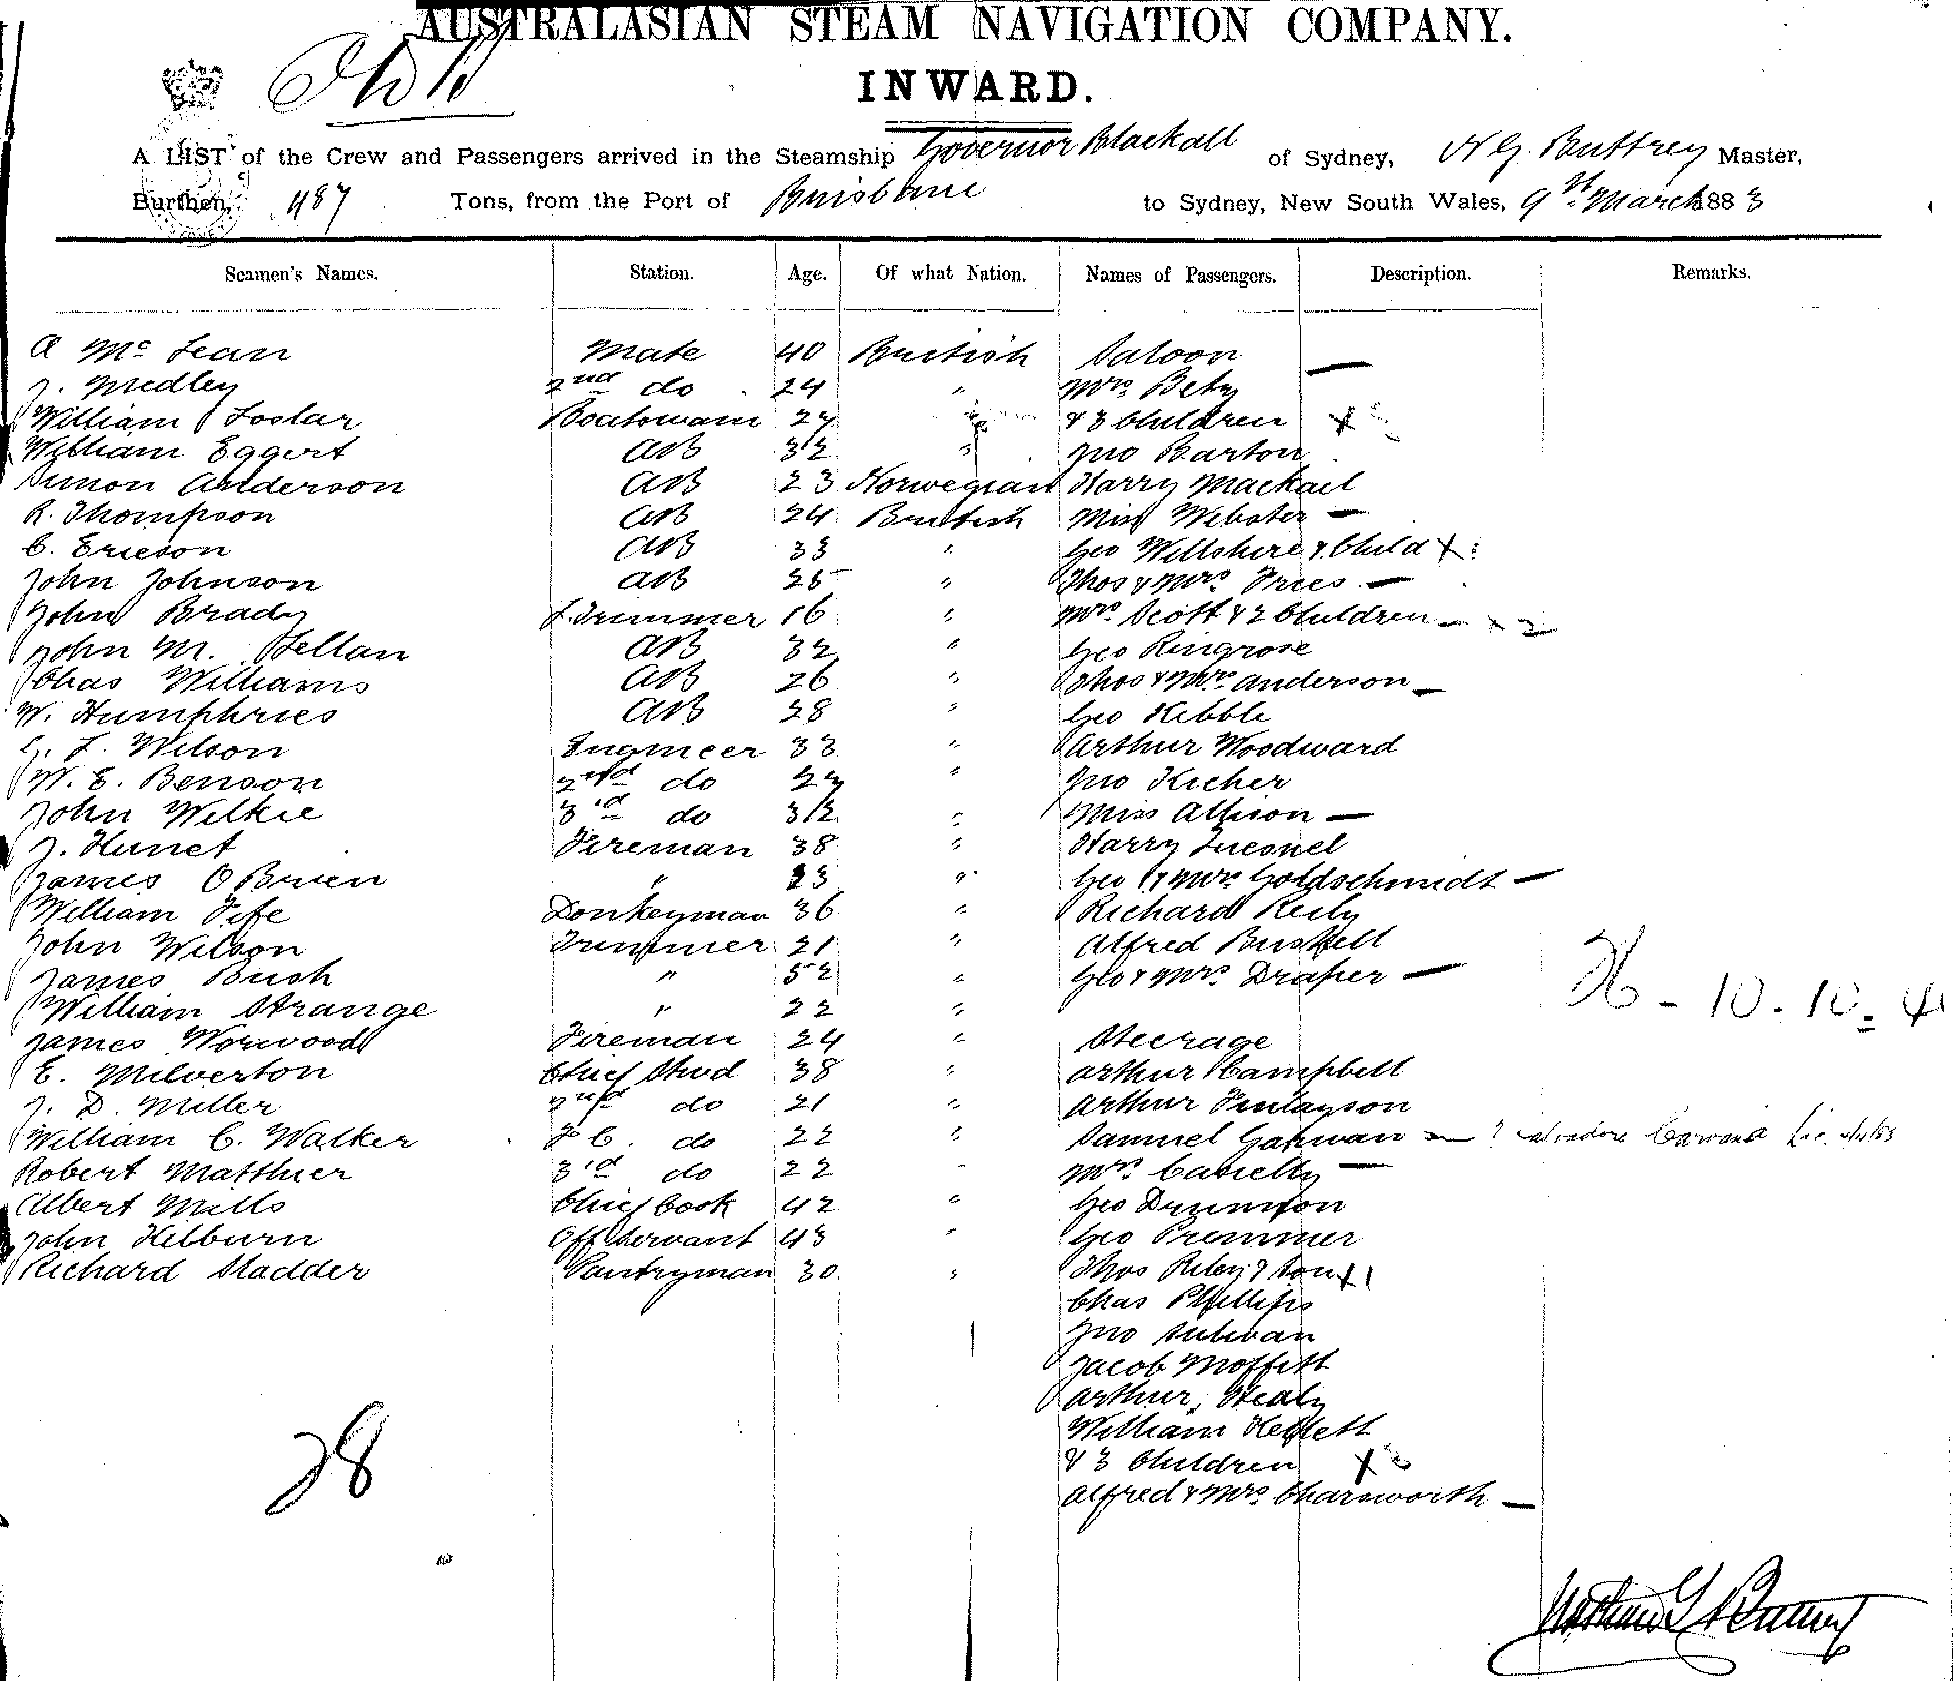 AUSTRALASIAN STEAM NAVIGATION COMPANY.
INWARD.
A LIST of the Crew and Passengers arrived in the Steamship Governor Blackall of Sydney, N G. Buttrey Master,
Burthen, 487 Tons, from the Port of Brisbane to Sydney, New South Wales, 9th March 1883
Seamen's Names. Station. Age. Of what Nation. Names of Passengers. Description. Remarks.
A McLean Mate 40 British Saloon —
J. Medley 2nd do 24 " Mrs. Beby
William Loslar Boatswain 27 " & 3 Children X 3
William Eggert AB 32 " Jno Barton
Simon Anderson AB 23 Norwegian Harry Mackail
R. Thompson AB 24 British Miss Webster —
C. Ericson AB 33 " Geo Willshire & Child X
John Johnson AB 25 " Thos & Mrs. Trees —
John Brady L. Trimmer 16 " Mrs. Scott & 2 Children — x 2
John M. Lellan AB 32 " Geo Ringrose
Chas Williams AB 26 " Thos & Mrs. Anderson —
W. Humphries AB 28 " Geo Kebble
G. F. Wilson Engineer 33 " Arthur Woodward
W. E. Benson 2nd do 27 " Jno Kicher
John Wilkie 3rd do 32 " Miss Allison —
J. Hunet Fireman 38 " Harry Quesnel
James O Brien " 23 " Geo & Mrs. Goldschmidt —
William Fife Donkeyman 36 " Richard Reily
John Wilson Trimmer 21 " Alfred Buskell
James Bush " 52 " Geo & Mrs. Draper —
William Strange " 22 " 36 - 10. 10. 4
James Worwood Fireman 24 " Steerage
E. Milverton Chief Stwd 38 " Arthur Campbell
J. D. Miller 2nd do 21 " Arthur Finlayson
William C. Walker F C. do 22 " Samuel Gahwan — ? Salvadore Carvana Lic.
Robert Matthier 3rd do 22 " Mrs. Canelly —
Albert Mills Chief Cook 42 " Geo Drumion
John Kilburn Off Servant 43 " Geo Premmer
Richard Sladder Pantryman 30 " Thos Riley & Son X 1
Chas Phillips
Jno Sulivan
Jacob Moffitt
Arthur, Healy
William Hesleth
& 3 Children X 3
Alfred & Mrs. Charsworth —
28